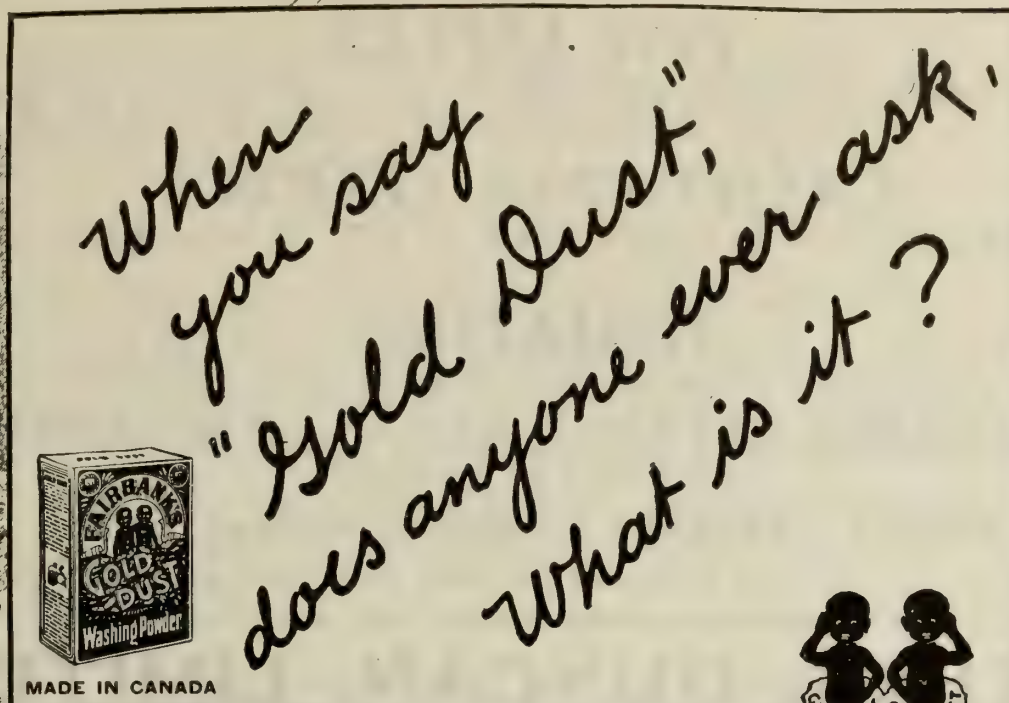 When
you say
"Gold Dust,"
does anyone ever ask,
What is it?
FAIRBANK'S
GOLD
DUST
Washing Powder
MADE IN CANADA